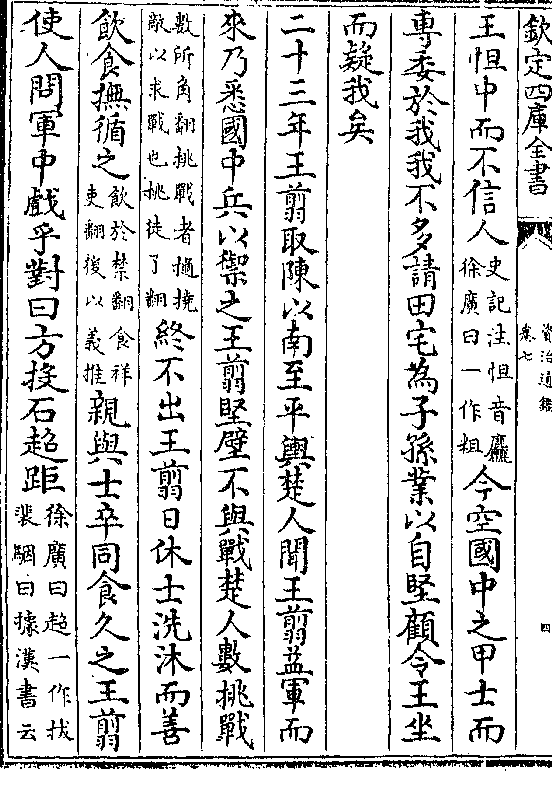 欽定四庫全書
資治通鑑
卷七
四
王怚中而不信人史記注怚音麤徐廣曰一作粗今空國中之甲士而
專委於我我不多請田宅為子孫業以自堅顧令王坐
而疑我矣
二十三年王翦取陳以南至平輿楚人聞王翦益軍而
來乃悉國中兵以禦之王翦堅壁不與戰楚人數挑戰
數所角翻挑戰者擿撓敵以求戰也挑徒了翻終不出王翦日休士洗沐而善
飲食撫循之飲於禁翻食祥吏翻後以義推親與士卒同食久之王翦
使人問軍中戲乎對曰方投石超距徐廣曰超一作拔裴駰曰據漢書云